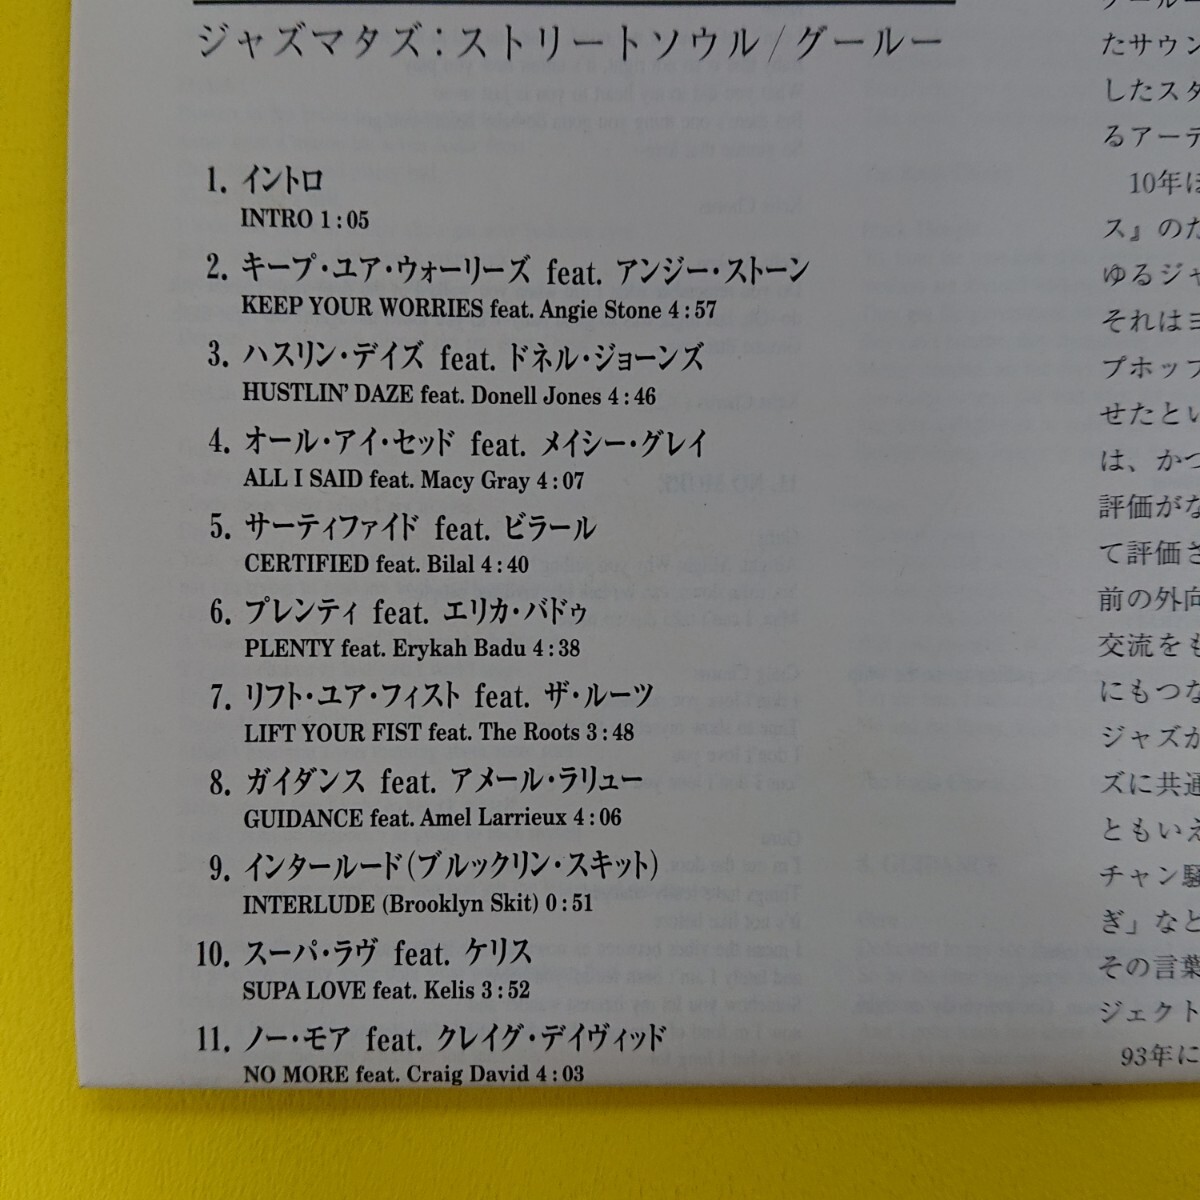 ジャズマタズ：ストリートソウル/グールー
1. イントロ
INTRO 1 : 05
2. キープ・ユア・ウォーリーズ feat. アンジー・ストーン
KEEP YOUR WORRIES feat. Angie Stone 4 : 57
3. ハスリン・デイズ feat. ドネル・ジョーンズ
HUSTLIN' DAZE feat. Donell Jones 4 : 46
4. オール・アイ・セッド feat. メイシー・グレイ
ALL I SAID feat. Macy Gray 4 : 07
5. サーティファイド feat. ビラール
CERTIFIED feat. Bilal 4 : 40
6. プレンティ feat. エリカ・バドゥ
PLENTY feat. Erykah Badu 4 : 38
7. リフト・ユア・フィスト feat. ザ・ルーツ
LIFT YOUR FIST feat. The Roots 3 : 48
8. ガイダンス feat. アメール・ラリュー
GUIDANCE feat. Amel Larrieux 4 : 06
9. インタールード(ブルックリン・スキット)
INTERLUDE (Brooklyn Skit) 0 : 51
10. スーパ・ラヴ feat. ケリス
SUPA LOVE feat. Kelis 3 : 52
11. ノー・モア feat. クレイグ・デイヴィッド
NO MORE feat. Craig David 4 : 03
たサウン
したスタ
るアーテ
10年ほ
ス』のた
ゆるジャ
それはヨ
プホップ
せたとい
は、かつ
評価がな
て評価さ
前の外向
交流をも
にもつな
ジャズが
ズに共通
ともいえ
チャン騒
ぎ」など
その言葉
ジェクト
93年に